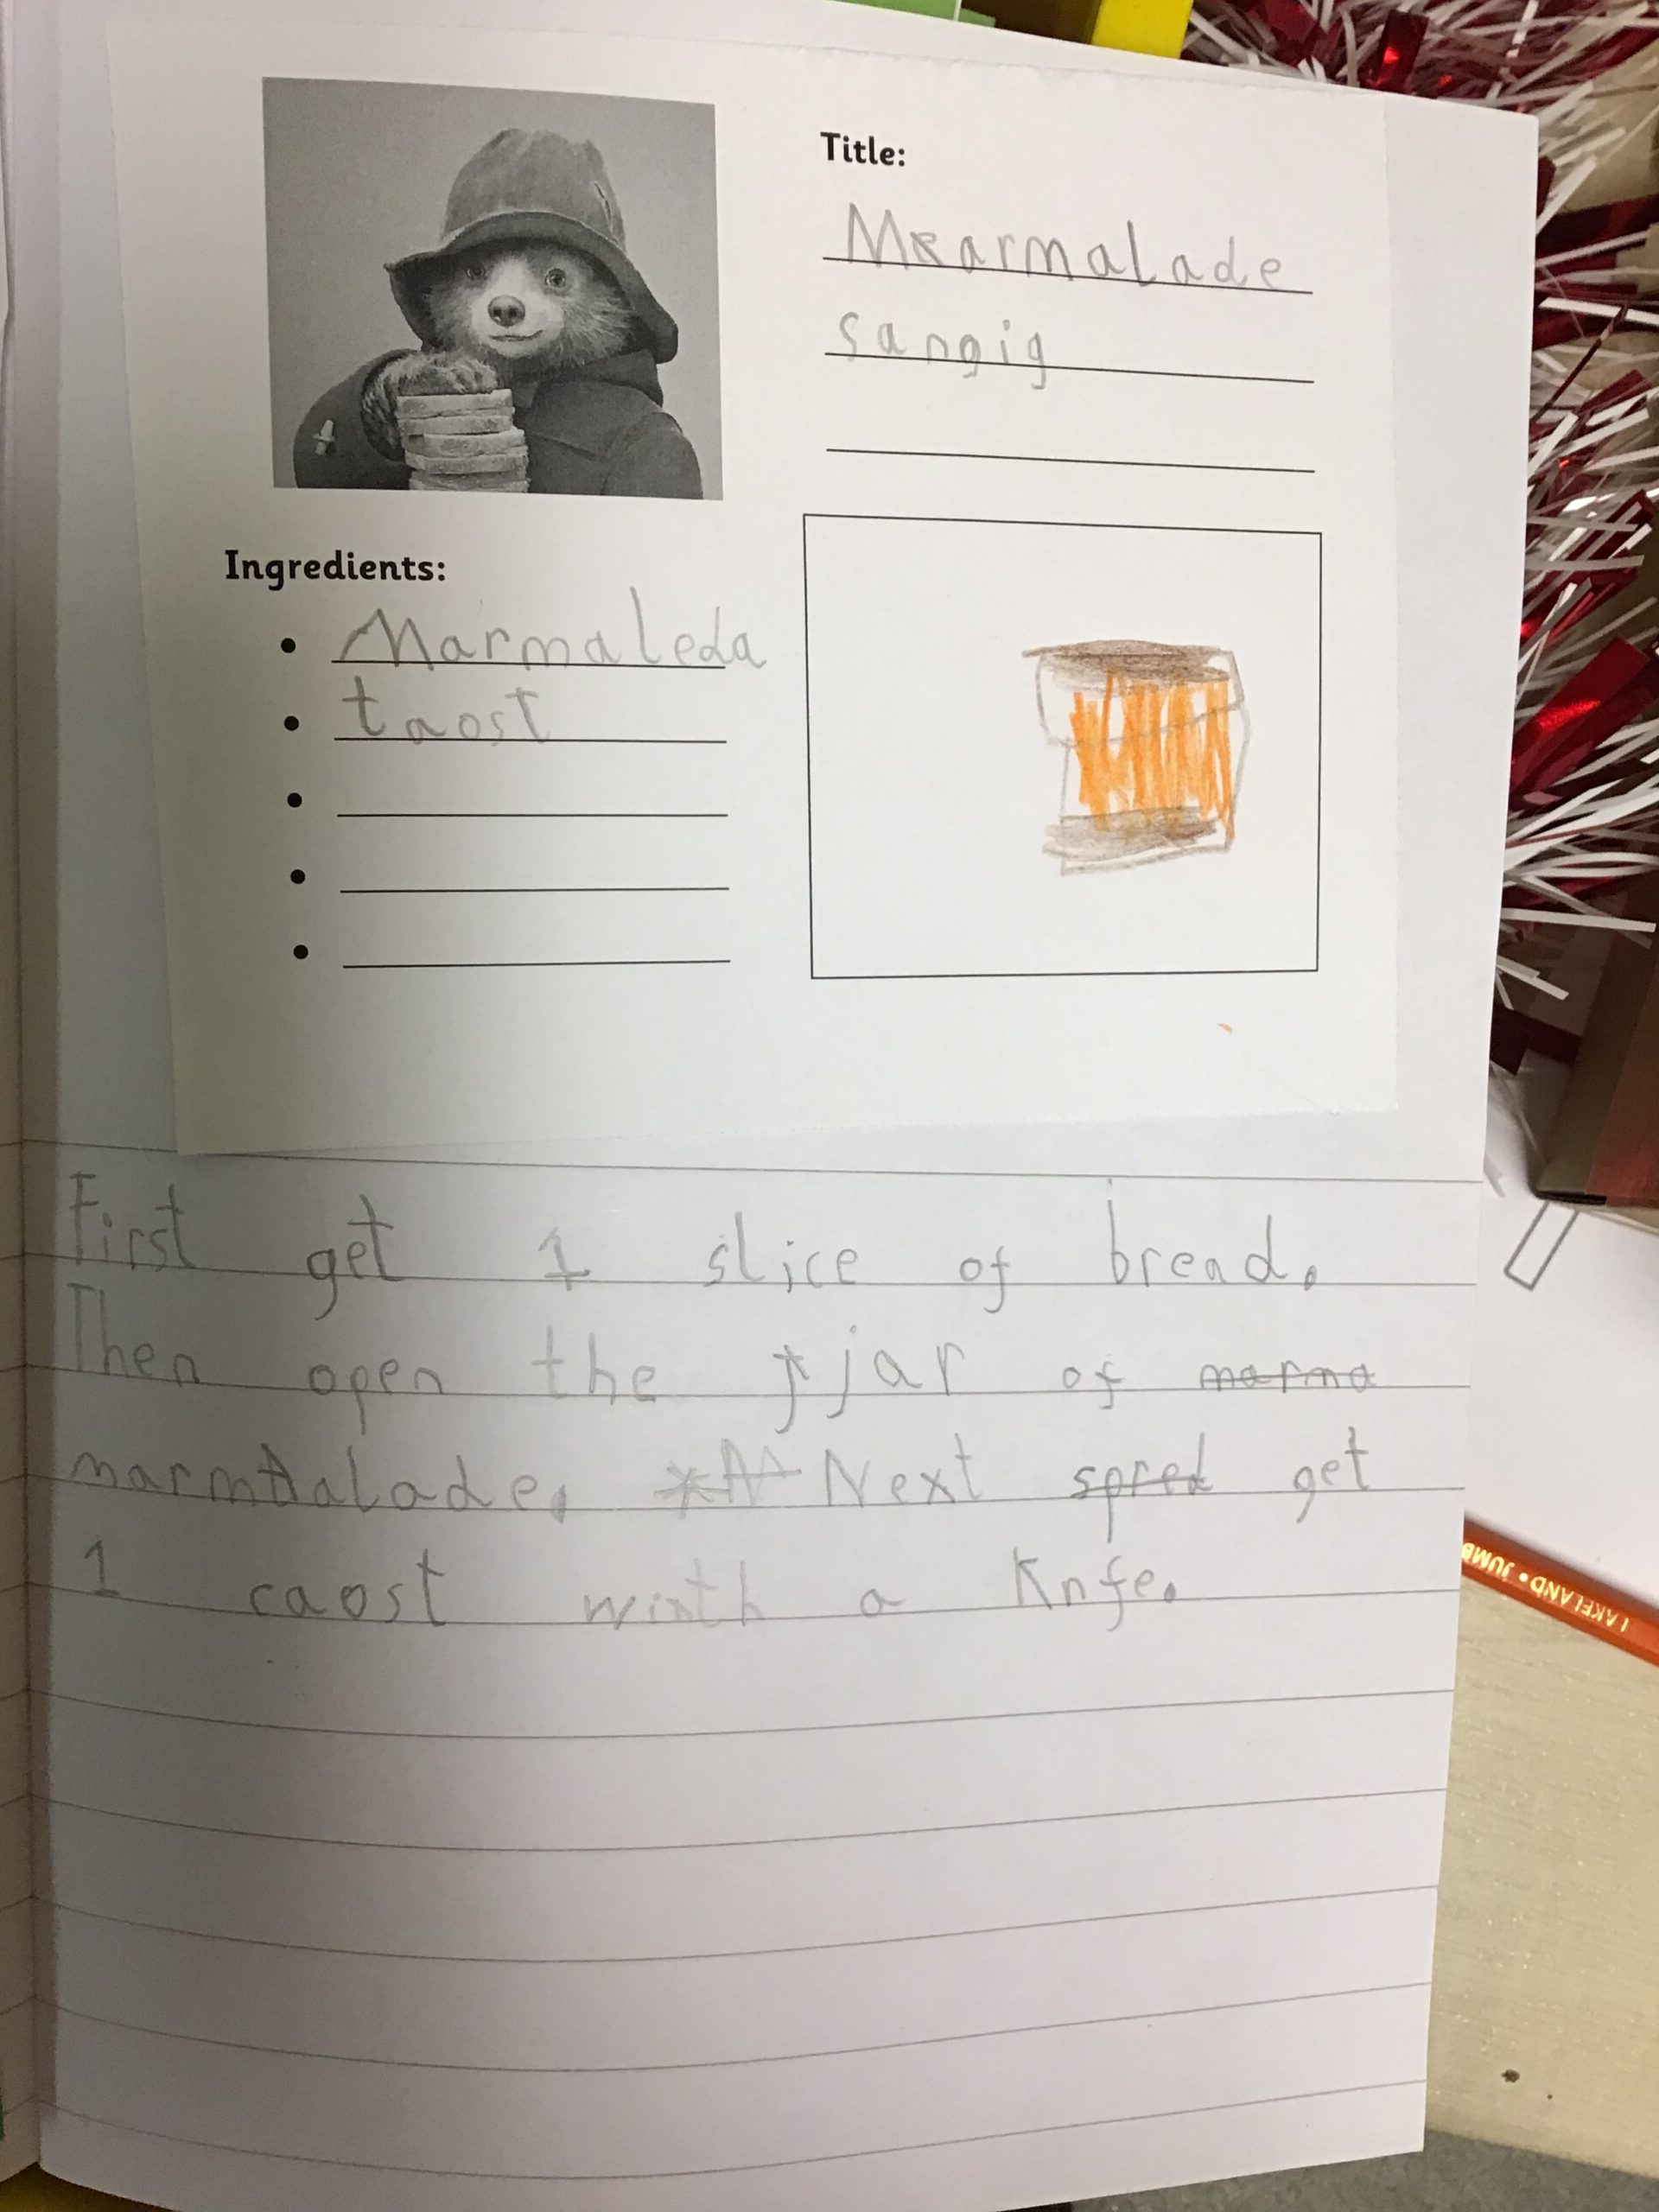 Title:
Marmalade
sangig
Ingredients:
Marmaleda
taost
First get 1 slice of bread.
Then open the jar of marma
marmalade. Next spred get
1 caost winth a Knfe.
LAKELAND • JUMB